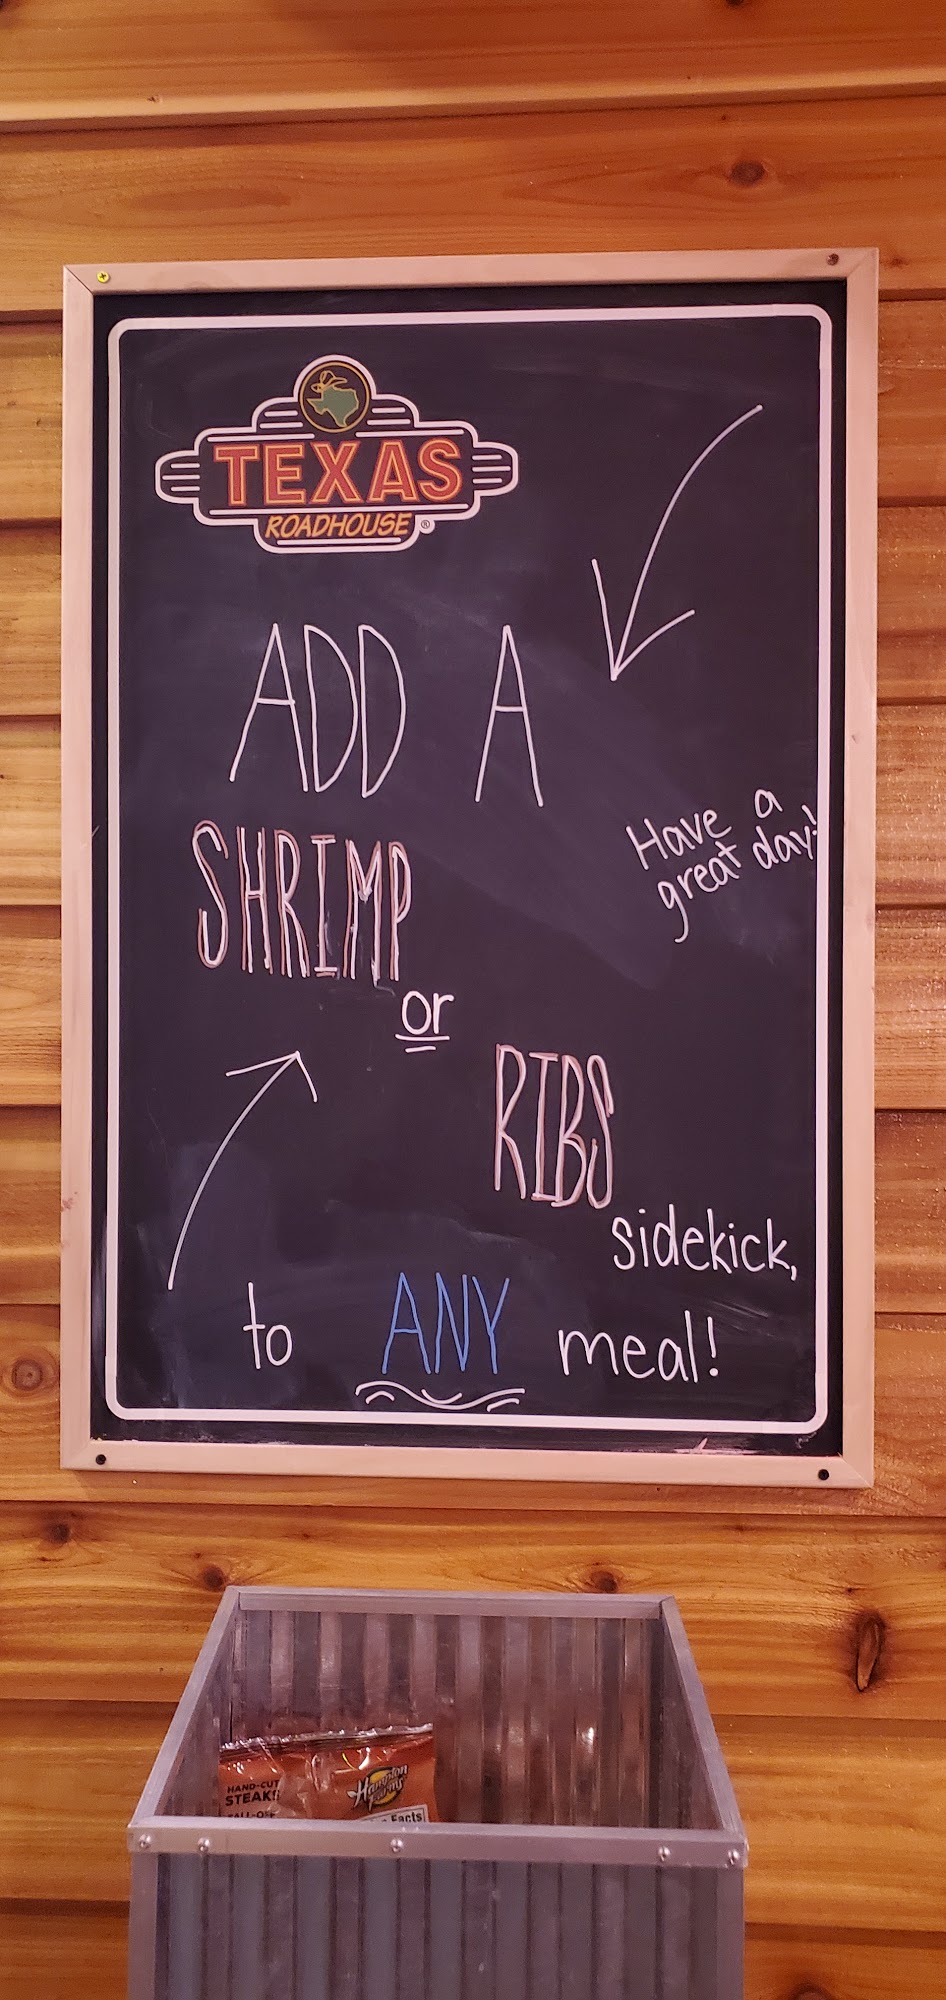 TEXAS
ROADHOUSE®
ADD A
Have a
great day!
SHRIMP
or
RIBS
sidekick,
to ANY meal!
HAND-CUT
STEAKS
Hampton
Farms
Facts